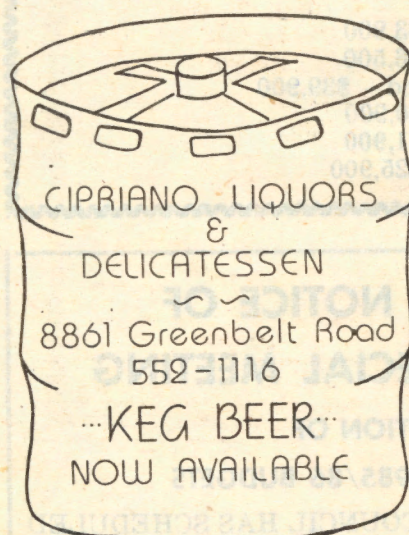 CIPRIANO LIQUORS
&
DELICATESSEN
8861 Greenbelt Road
552-1116
...KEG BEER...
NOW AVAILABLE